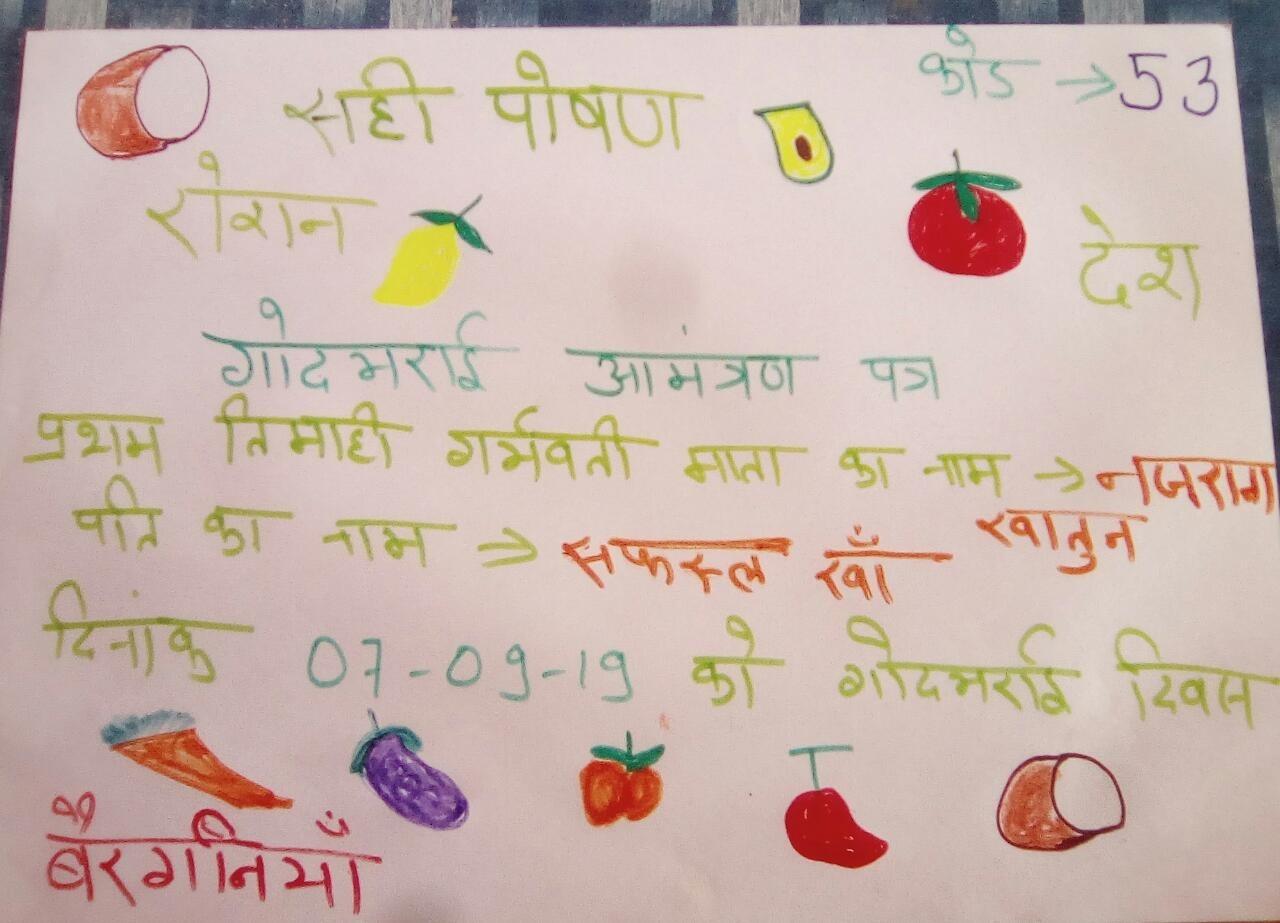 कोड → 53
सही पोषण
रोशन देश
गोदभराई आमंत्रण पत्र
प्रथम तिमाही गर्भवती माता का नाम → नजराना
खातुन
पति का नाम ⇒ सफरूल खाँ
दिनांक 07-09-19 को गोदभराई दिवस
बैरगनियाँ